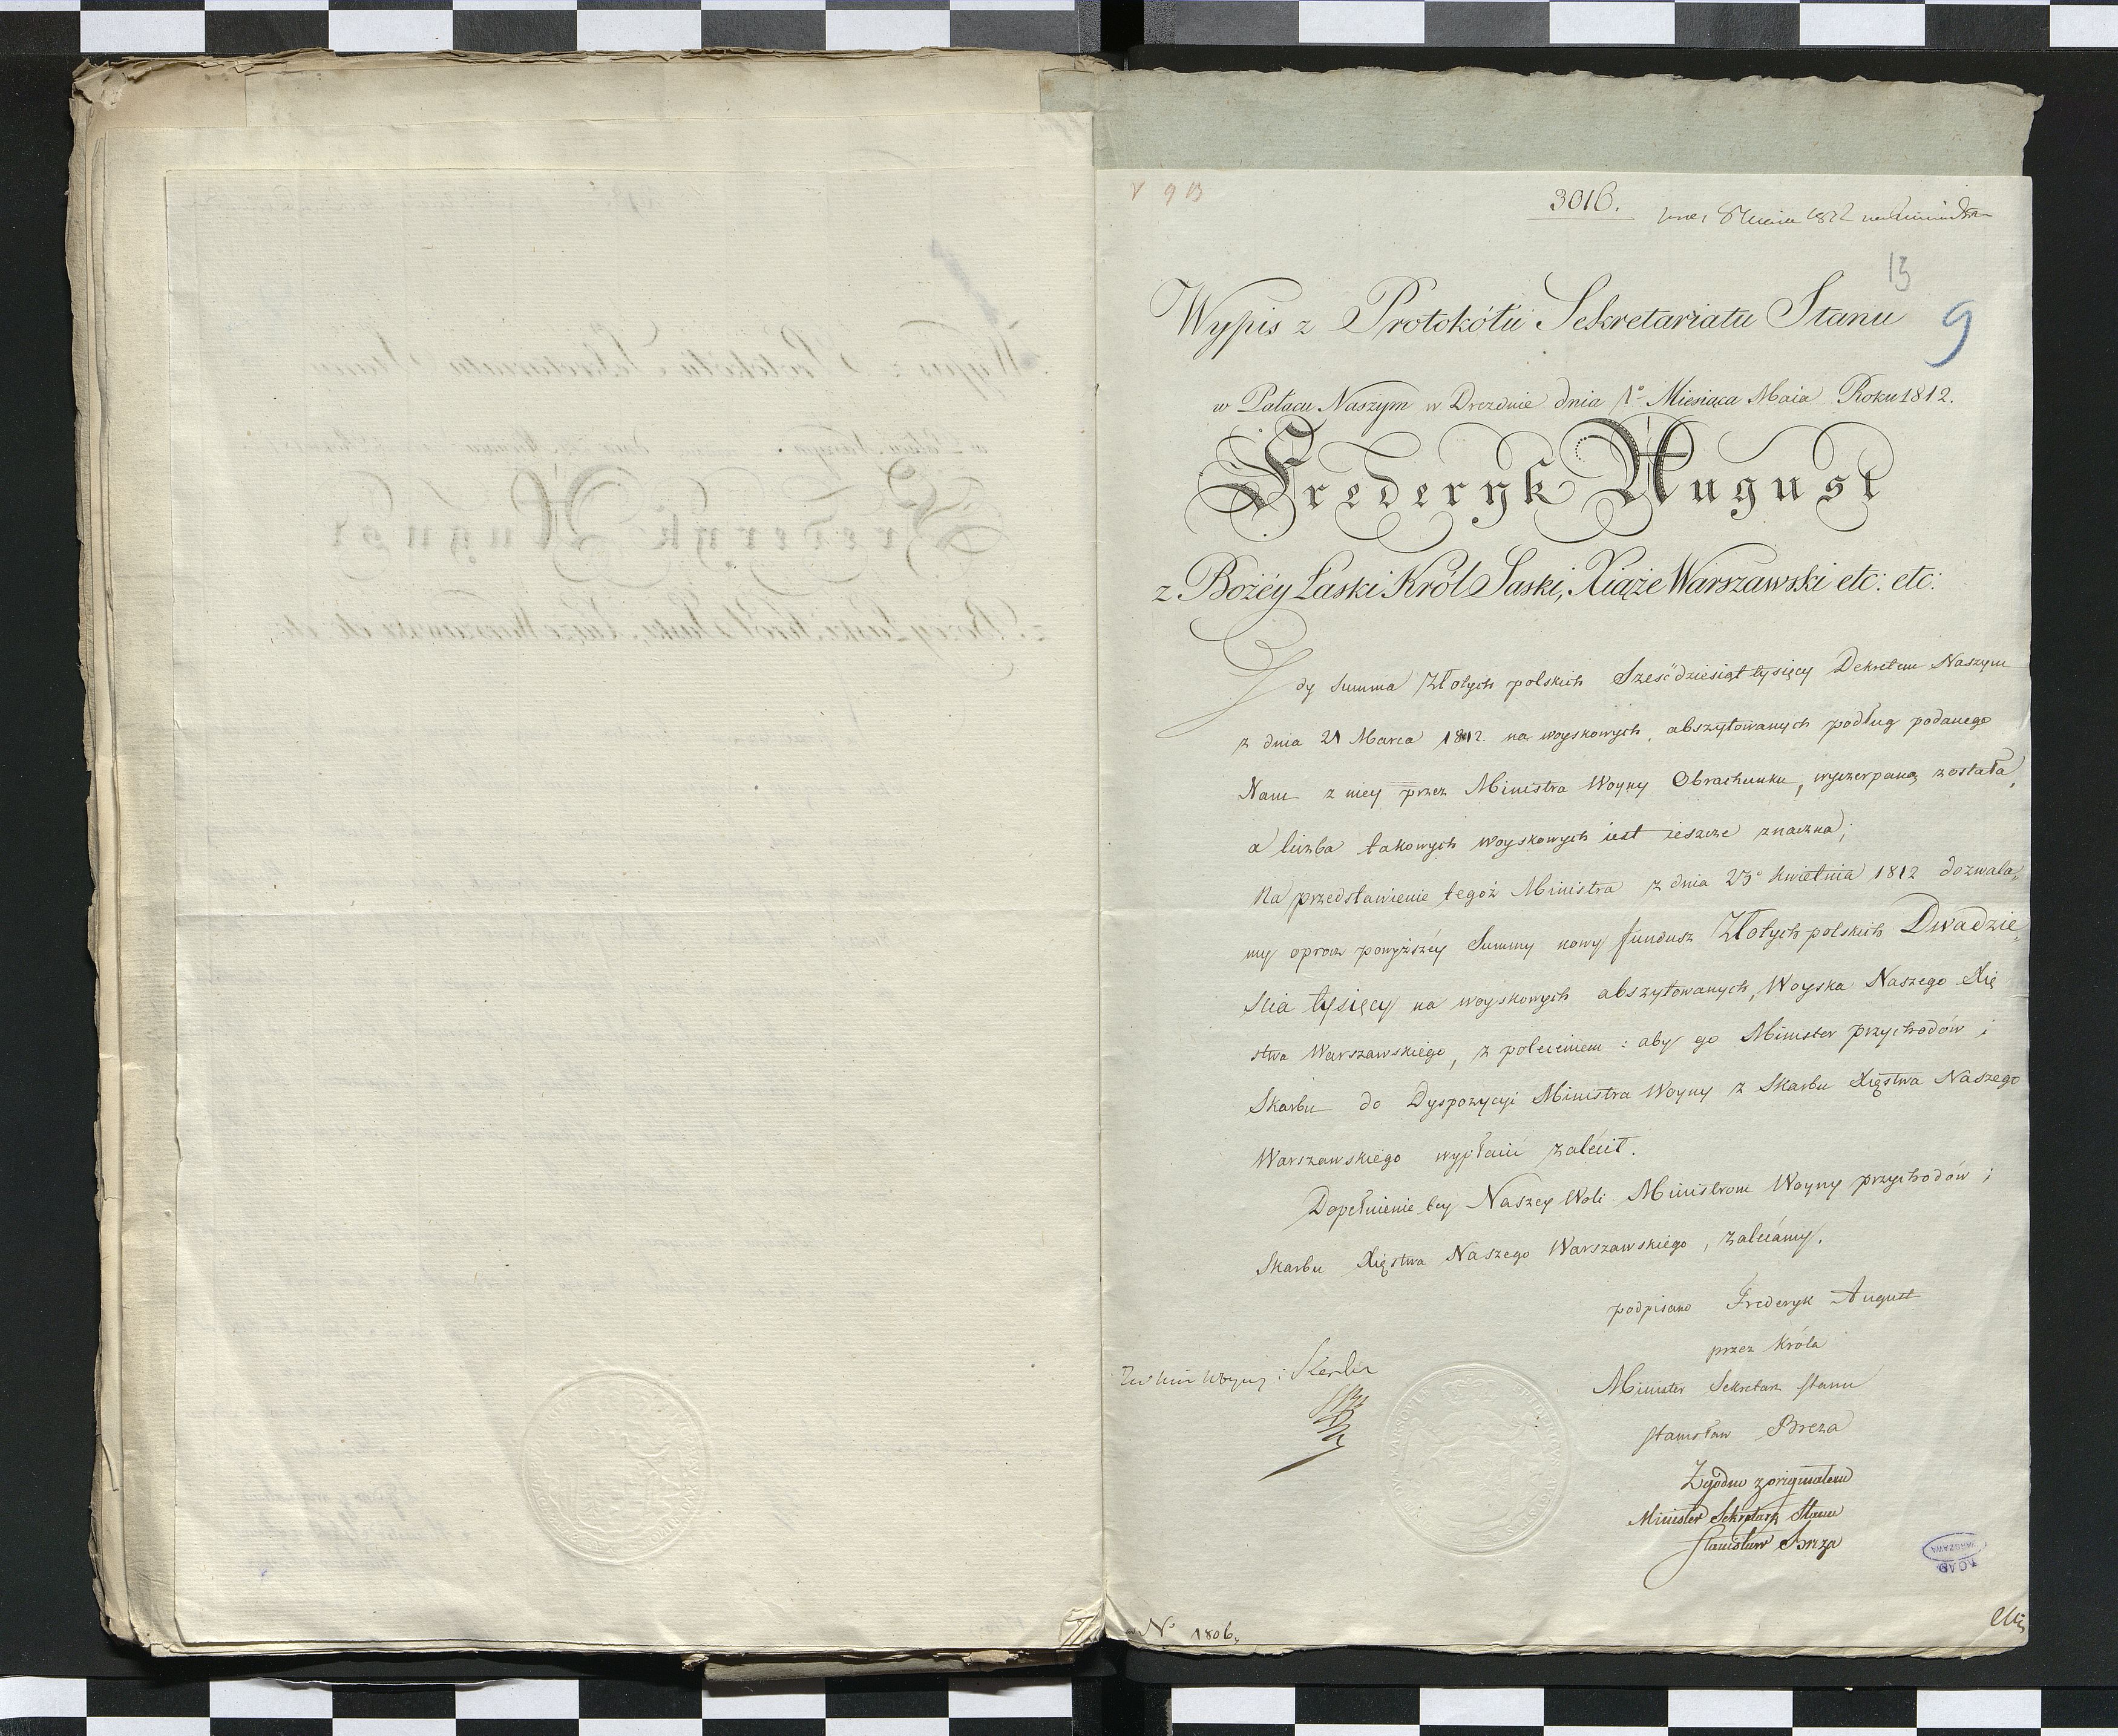 3016.
13
9
Wypis z Protokółu Sekretariatu Stanu
w Pałacu Naszym w Dreznie dnia 1° Miesiąca Maia Roku 1812.
Frederyk August
z Bożéy Łaski Król Saski, Xiąże Warszawski etc: etc:
Gdy Summa Złotych polskich Sześćdziesiąt tysięcy Dekretem Naszym
z dnia 21 Marca 1812. na woyskowych abszytowanych podług podanego
Nam z niey przez Ministra Woyny Obrachunku, wyczerpaną została,
a liczba takowych woyskowych iest ieszcze znaczna;
Na przedstawienie tegoż Ministra z dnia 23° Kwietnia 1812 dozwala„
my oprocz powyższéy Summy nowy fundusz Złotych polskich Dwadzie„
scia tysięcy na woyskowych abszytowanych, Woyska Naszego Xię
stwa Warszawskiego, z poleceniem: aby go Minister przychodów i
Skarbu do Dyspozycyi Ministra Woyny z Skarbu Xięstwa Naszego
Warszawskiego wypłacić zalécił.
Dopełnienie tey Naszey Woli Ministrom Woyny przychodów i
Skarbu Xięstwa Naszego Warszawskiego, zalécamy.
podpisano Frederyk August
przez Króla
Minister Sekretarz Stanu
Stanisław Breza
Zgodno z oryginałem
Minister Sekretarz Stanu
Stanisław Breza
AGAD
WARSZAWA
N° 1806.